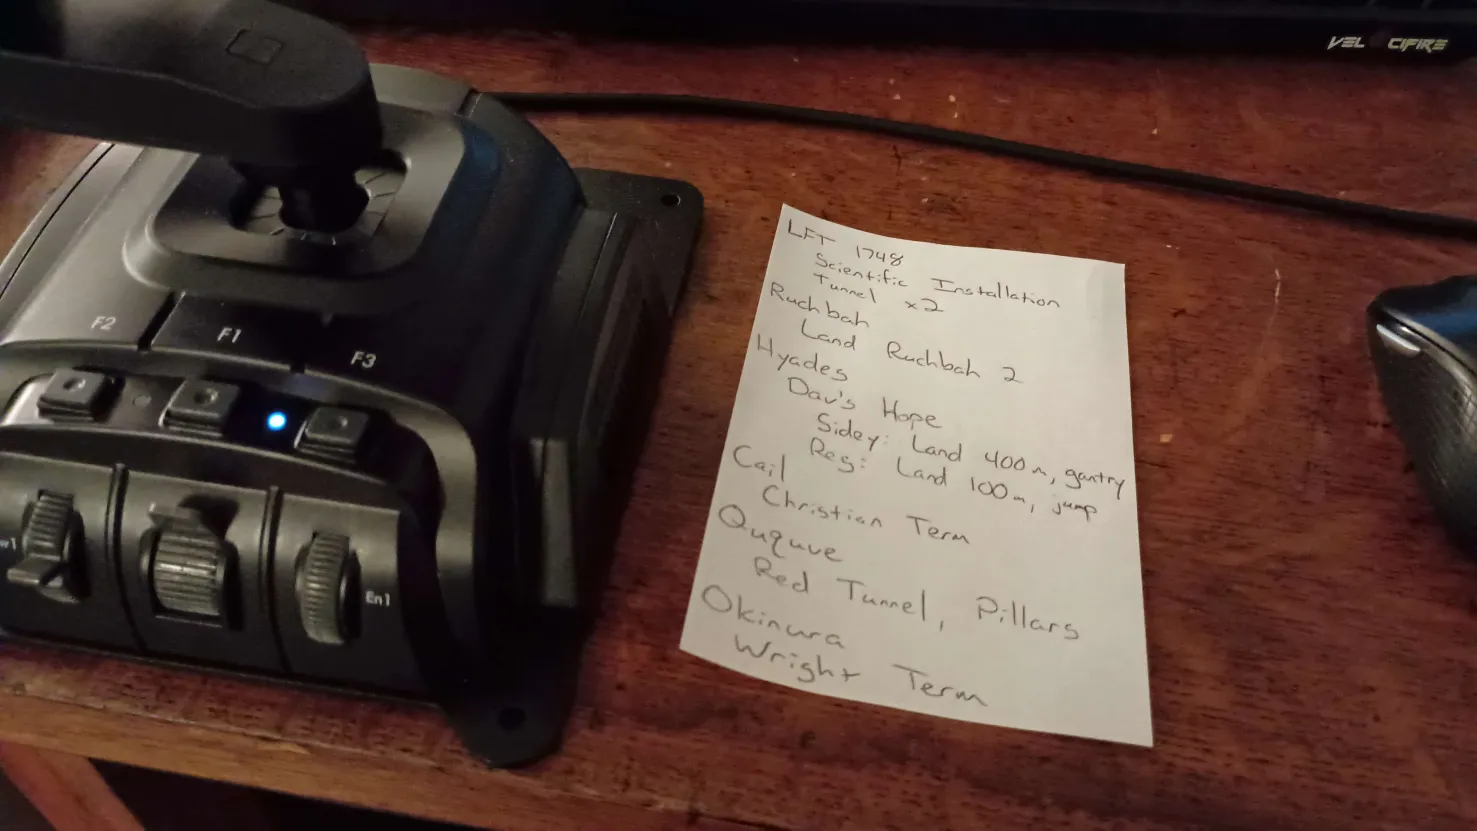 VEL CIFIRE
F2
F1
F3
En1
LFT 1748
Scientific Installation
Tunnel x2
Ruchbah
Land Ruchbah 2
Hyades
Dav's Hope
Sidey: Land 400m, gantry
Reg: Land 100m, jump
Cail
Christian Term
Ququve
Red Tunnel, Pillars
Okinura
Wright Term